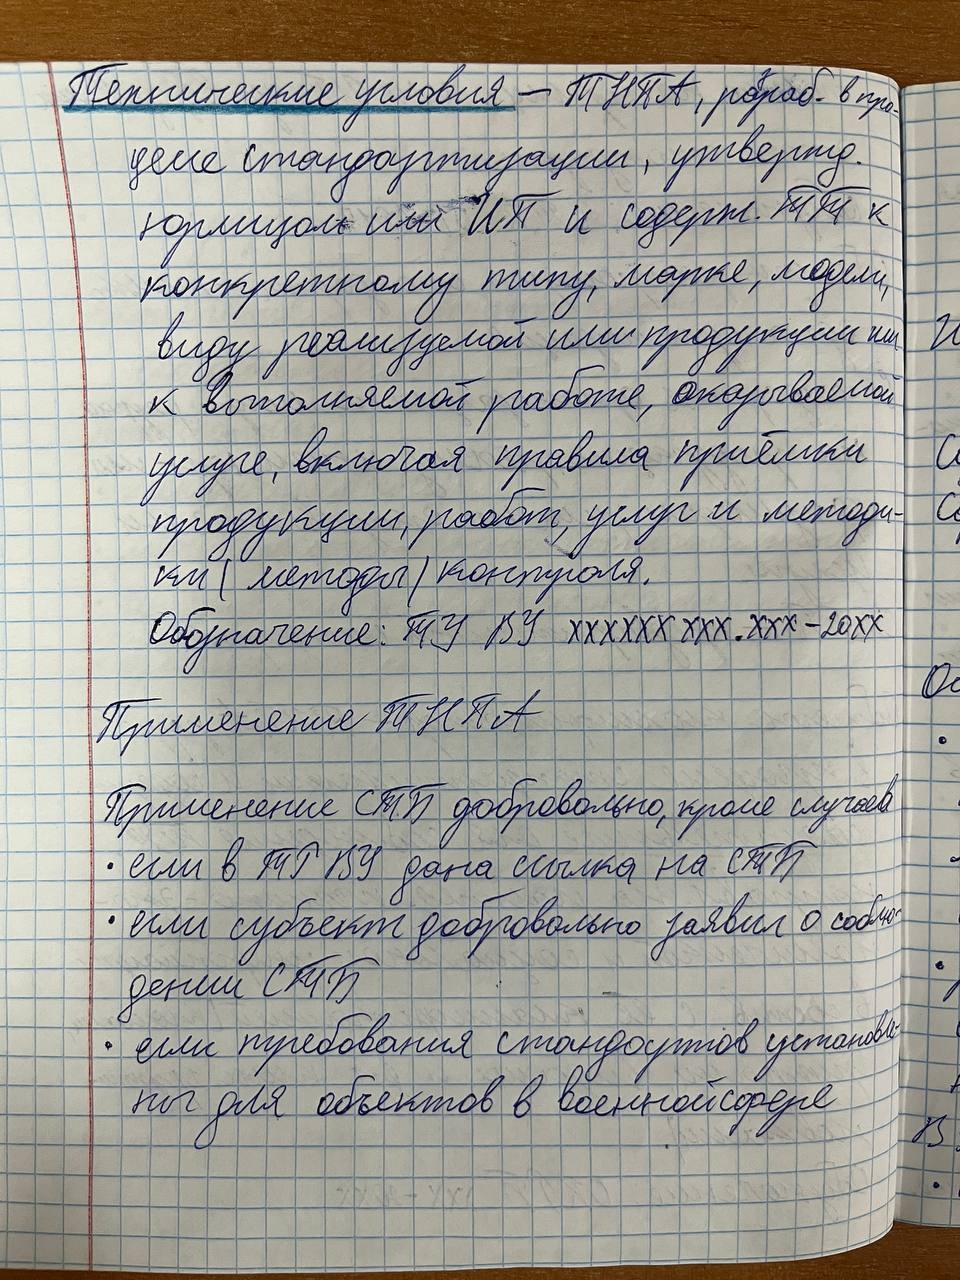 Технические условия – ТНПА, разраб. в про-
цессе стандартизации, утвержд.
юрлицом или ИП и содерж. ТТ к
конкретному типу, марке, модели,
виду реализуемой или продукции или
к выполняемой работе, оказываемой
услуге, включая правила приёмки
продукции, работ, услуг и методи-
ки (методы) контроля.
Обозначение: ТУ BY XXXXXX XXX.XXX – 20XX
Применение ТНПА
Применение СТБ добровольно, кроме случаев
• если в ТР BY дана ссылка на СТБ
• если субъект добровольно заявил о соблю-
дении СТБ
• если требования стандартов установле-
ны для объектов в военной сфере